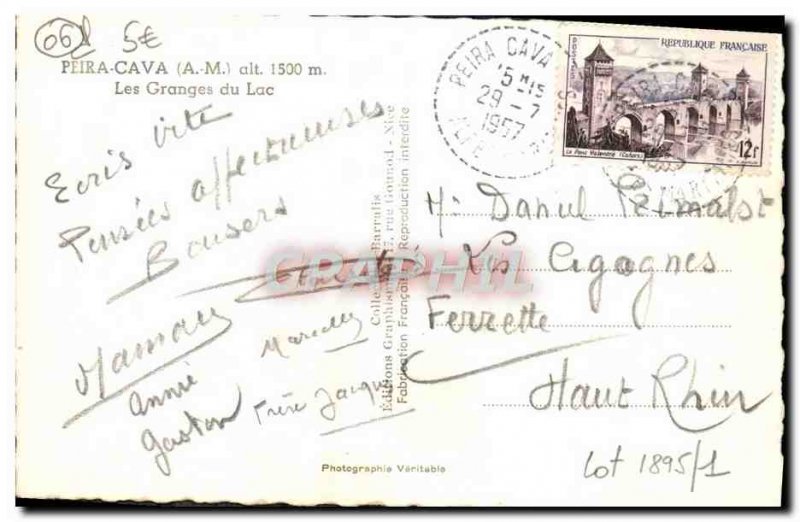 06
5€
PEIRA-CAVA (A.-M.) alt. 1500 m.
Les Granges du Lac
Ecris vite
Pensées affectueuses
Bousers
Maman
Marcelle
Annie
Gaston
Frère Jacques
Editions Graphis 17, rue Gounod - Nice
Fabrication Française Reproduction interdite
Photographie Véritable
PEIRA CAVA
15 H 15
29 - 7
1957
REPUBLIQUE FRANÇAISE
POSTES
Le Pont Valentré (Cahors)
12F
Mr Daniel
Les Cigognes
Ferrette
Haut Rhin
Lot 1895/1
CPAPHIL